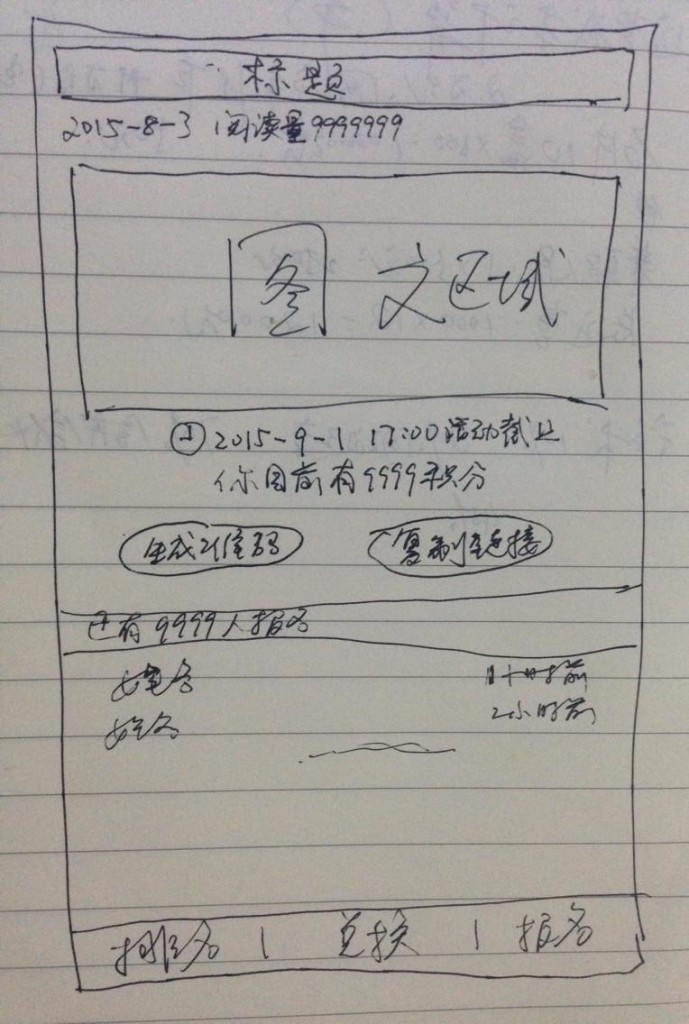 标题
2015-8-3 阅读量9999999
图文区域
2015-9-1 17:00活动截止
你目前有9999积分
生成二维码 复制连接
已有9999人报名
姓名 1小时前
姓名 2小时前
排名 | 兑换 | 报名